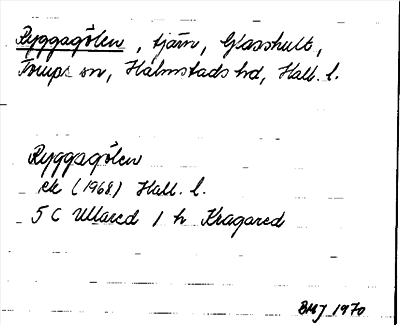 Ryggagölen, tjärn, Glasshult,
Torups sn, Halmstads hd, Hall. l.
Ryggagölen
ek (1968) Hall. l.
5 C Ullared 1 h Kragared
BMJ 1970